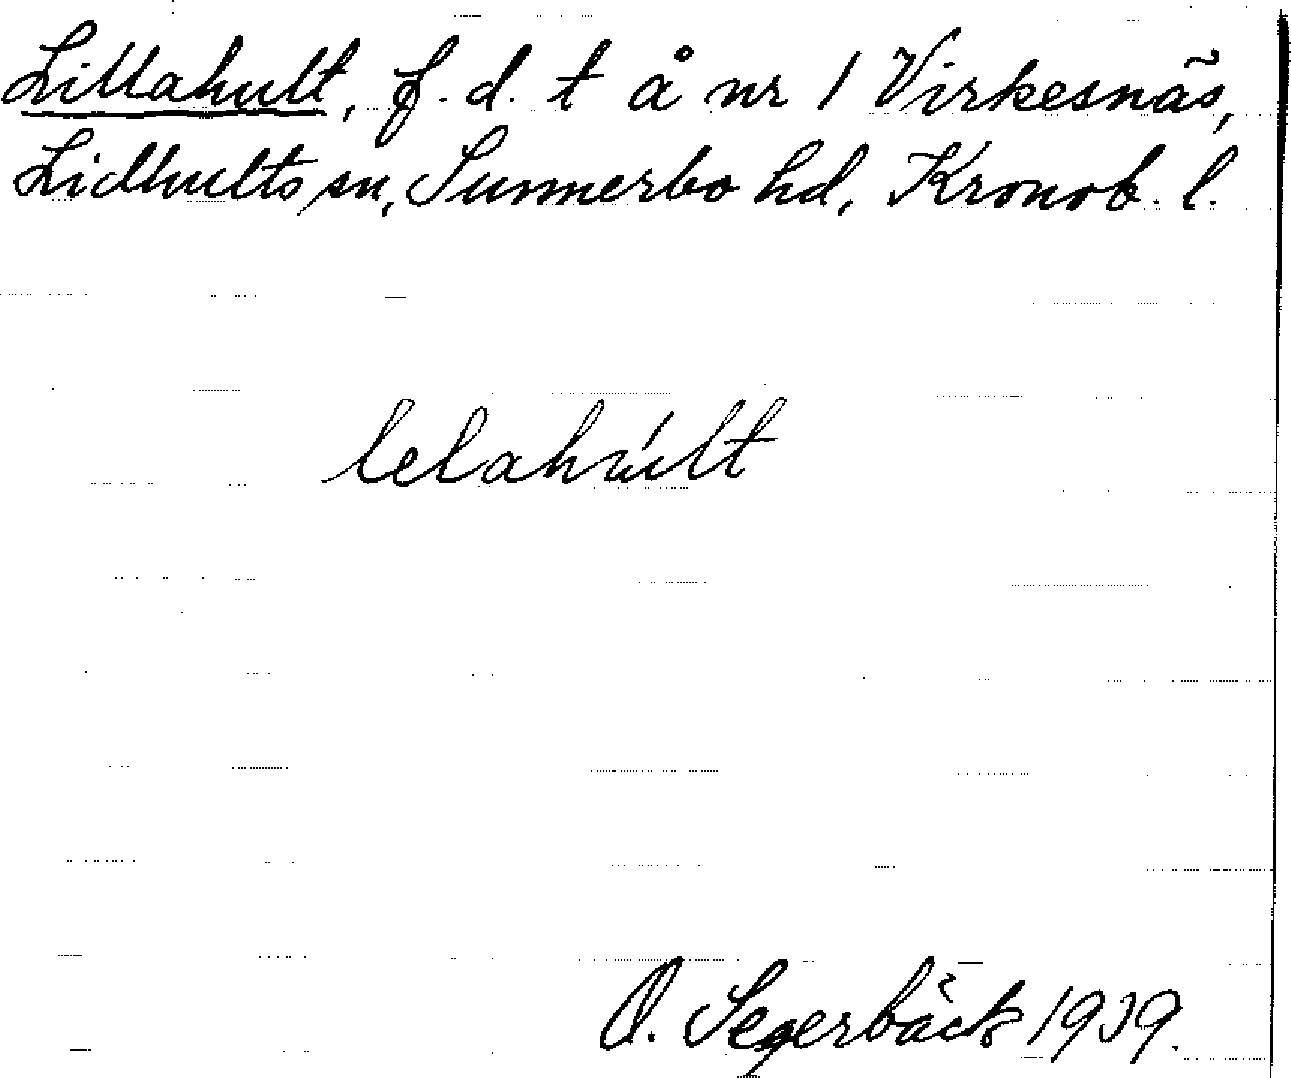 Lillahult, f. d. t å nr 1 Virkesnäs,
Lidhults sn, Sunnerbo hd, Kronob. l.
lelahúlt
O. Segerbäck 1939.